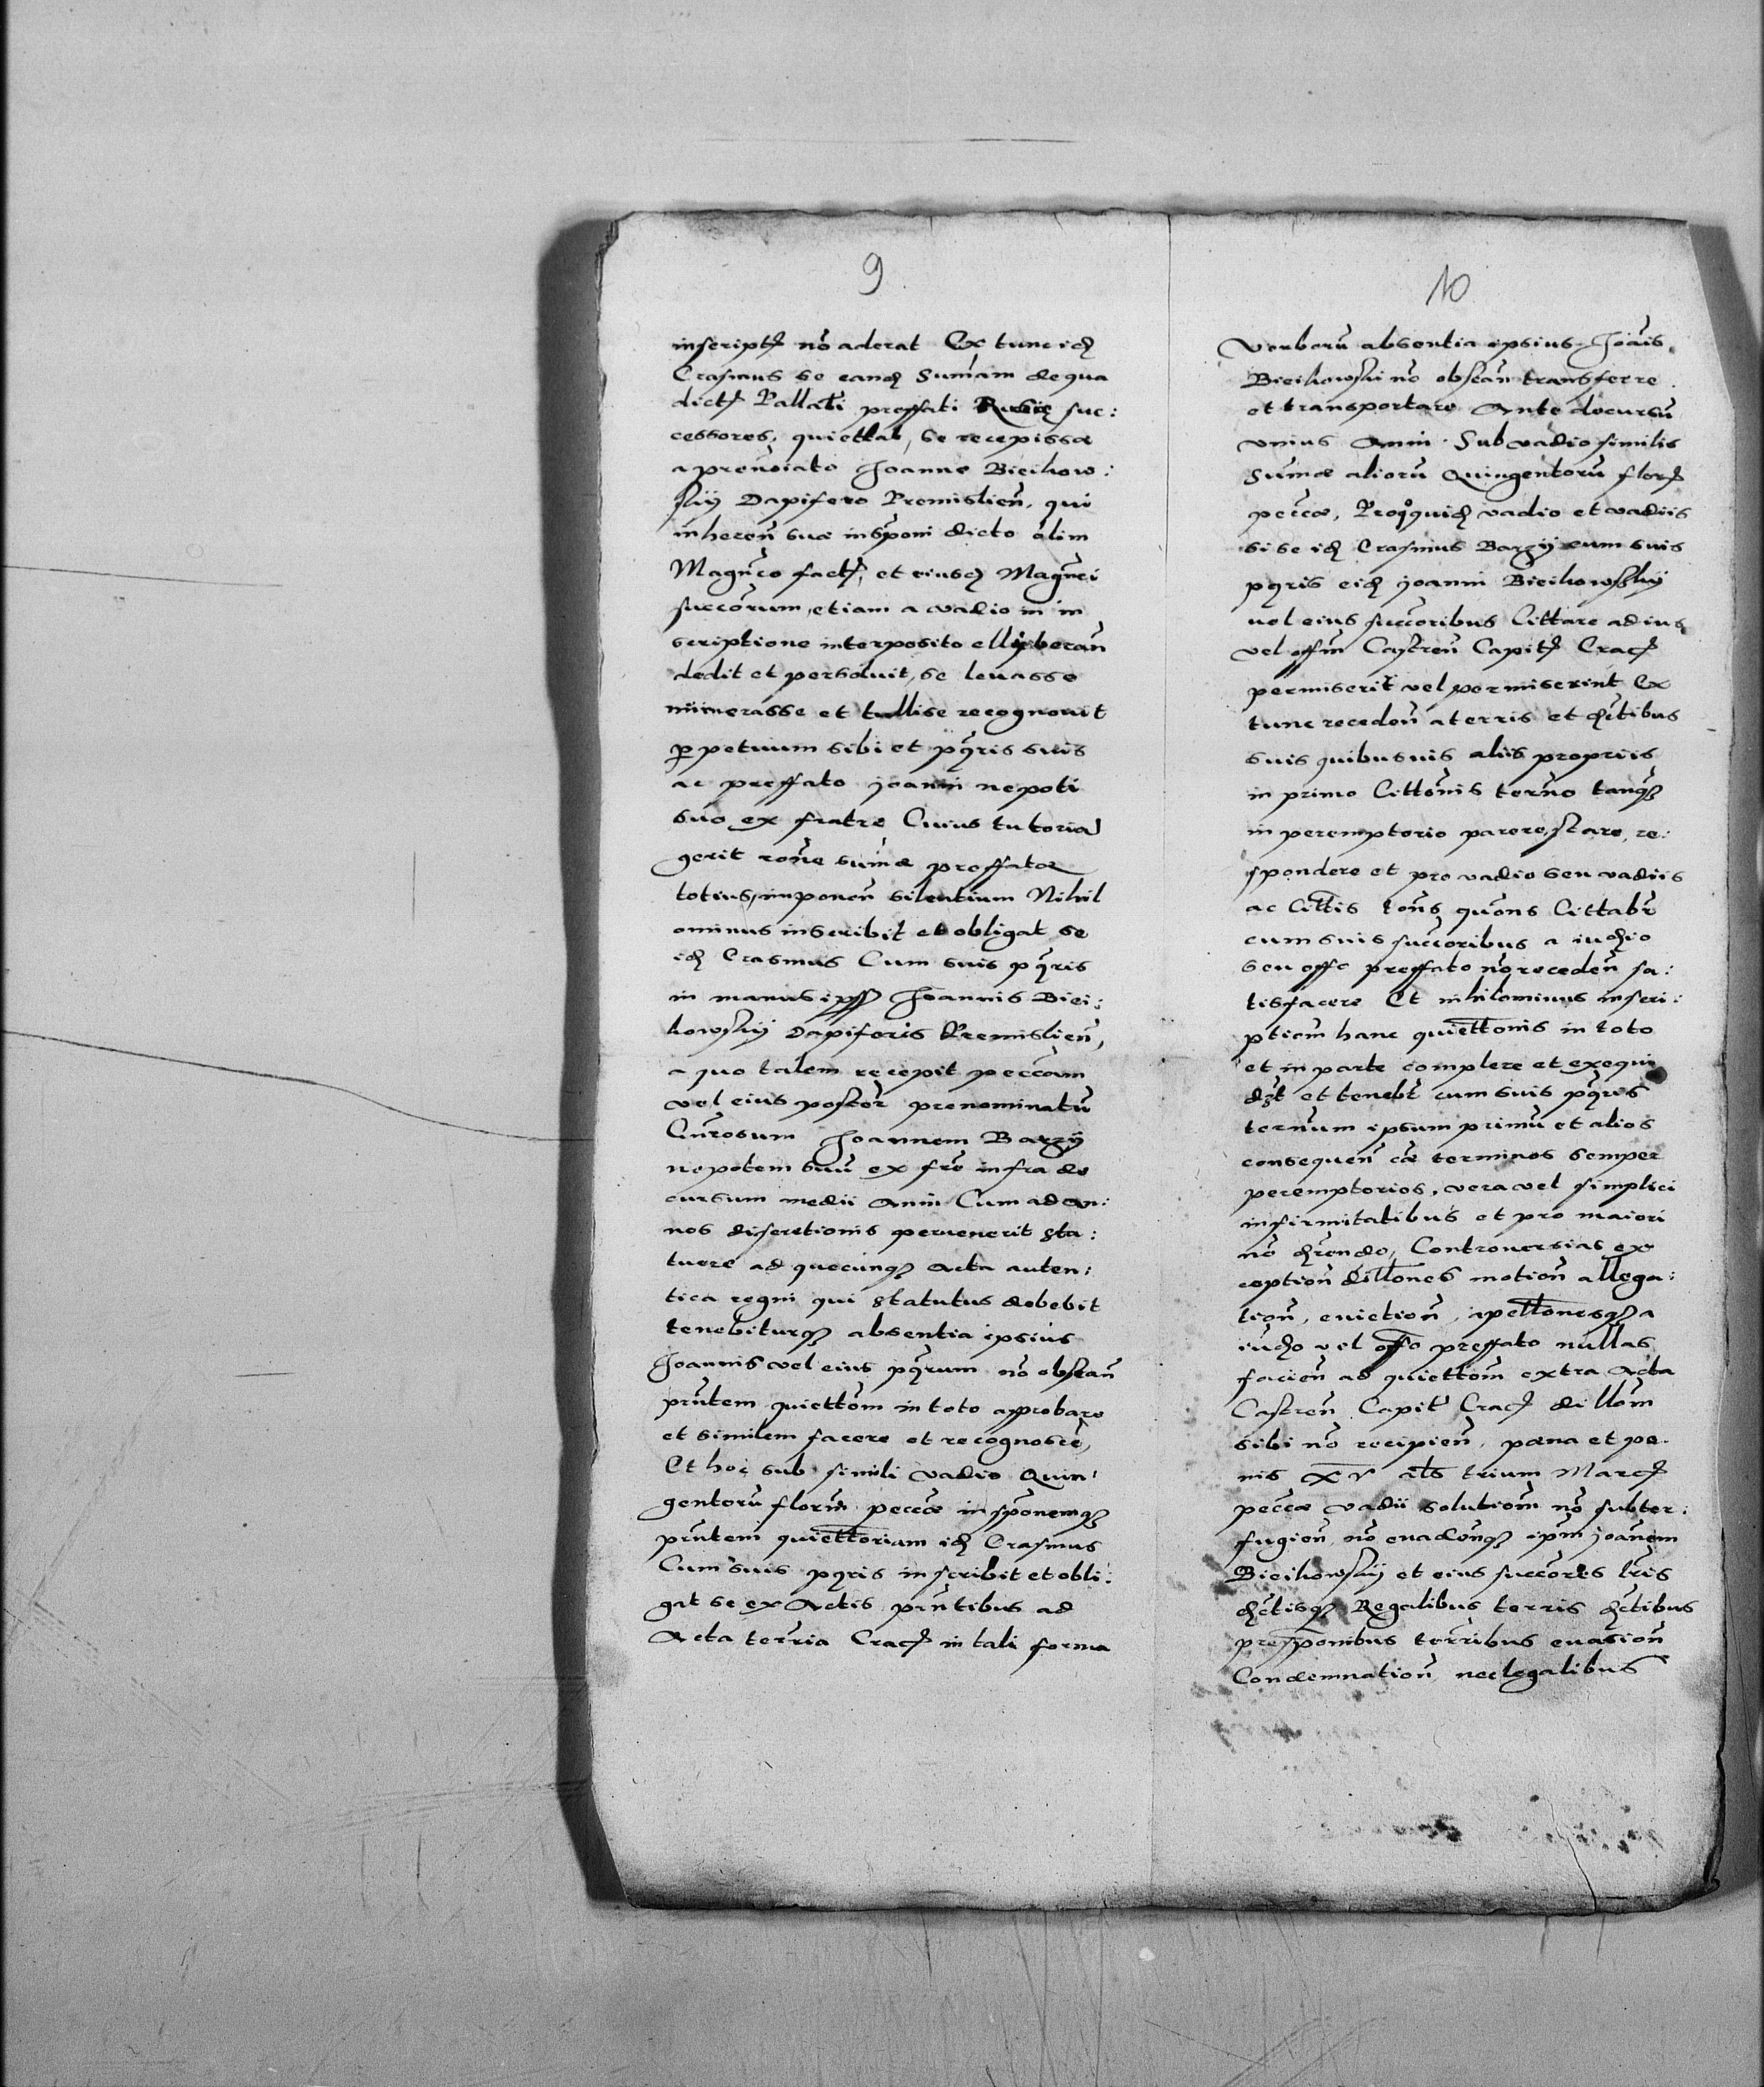 9
inscript non aderat Ex tunc idem
Erasmus se eandem Summam de qua
dict Pallati preffati Russie suc:
cessores, quiettat, se recepisse
a prenoiato Joanne Bieikow:
skij Dapifero Premislien, qui
inheren sue insponi dicto olim
Magnco fact, et eiusd Magnci
succorum, etiam a vadio in in
scriptione interposito ellyberan
dedit et persoluit, se leuasse
numerasse et tullise recognouit
perpetuum sibi et pqris suis
ac preffato joanni nepoti
suo ex fratre Cuius tutoria
gerit rone sume preffatae
totius, imponen silentium Nihil
ominus inscribit et obligat se
idem Erasmus Cum suis pqris
in manus ipss Joannis Biei:
kowskij Dapiferis Premislien,
a quo talem recepit peccam
vel eius poster prenominatu
Gnrosum Joannem Barzij
nepotem suu ex fre infra de
cursum medii Anni Cum ad an:
nos discretionis peruenerit sta:
tuere ad quecunq acta auten:
tica regni qui statutus debebit
tenebiturq absentia ipsius
Joannis vel eius pqrum no obstan
prntem quiettom in toto approbare
et similem facere et recognosce,
Et hoc sub simili vadio Quin
gentoru floren pecce insponemq
prntem quiettoriam id Erasmus
Cum suis pqris inscribit et obli:
gat se ex Actis prntibus ad
Acta terria Crac in tali forma
10
verboru absentia ipsius Joanis
Bieikowski no obstan transferre
et transportare Ante decursu
vnius Anni. Sub vadio similis
Sume alioru Quingentoru flor
pecce, Pro quid vadio et vadiis
si se id Erasmus Barzij cum suis
pqris eid joanni Bieikowskij
vel eius succoribus Cittare ad ius
vel offm Castren Capit Crac
permiserit vel permiserint Ex
tunc receden a terris et dctibus
suis quibusuis aliis propriis
in primo Cittonis terno tanq
in peremptorio parere, stare, re:
spondere et pro vadio seu vadiis
ac Cittis tons quons Cittabr
cum suis succoribus a iudio
seu offo preffato no receden sa:
tisfacere Et nihilominus inscri:
ptiom hanc quiettonis in toto
et in parte complere et exequi
dbt et tenebt cum suis pqris
ternum ipsum primu et alios
consequen ee terminos semper
peremptorios, vera vel simplici
infirmitatibus et pro maiori
no drendo, Controuersias ex
ception dillones motion allega:
tion, euiction, apellonesq a
iudo vel offo preffato nullas
facien ad quiettom extra Acta
Castren Capit Crac dillom
sibi no recipien, pena et pe
nis xv als trium Marc
pecce vadii solutiom no subter:
fugien, no euadenq ipm joanem
Bieikowskij et eius succores lris
dctisq Regalibus terris dctibus
presponibus terribus euasion
Condemnation nec legalibus